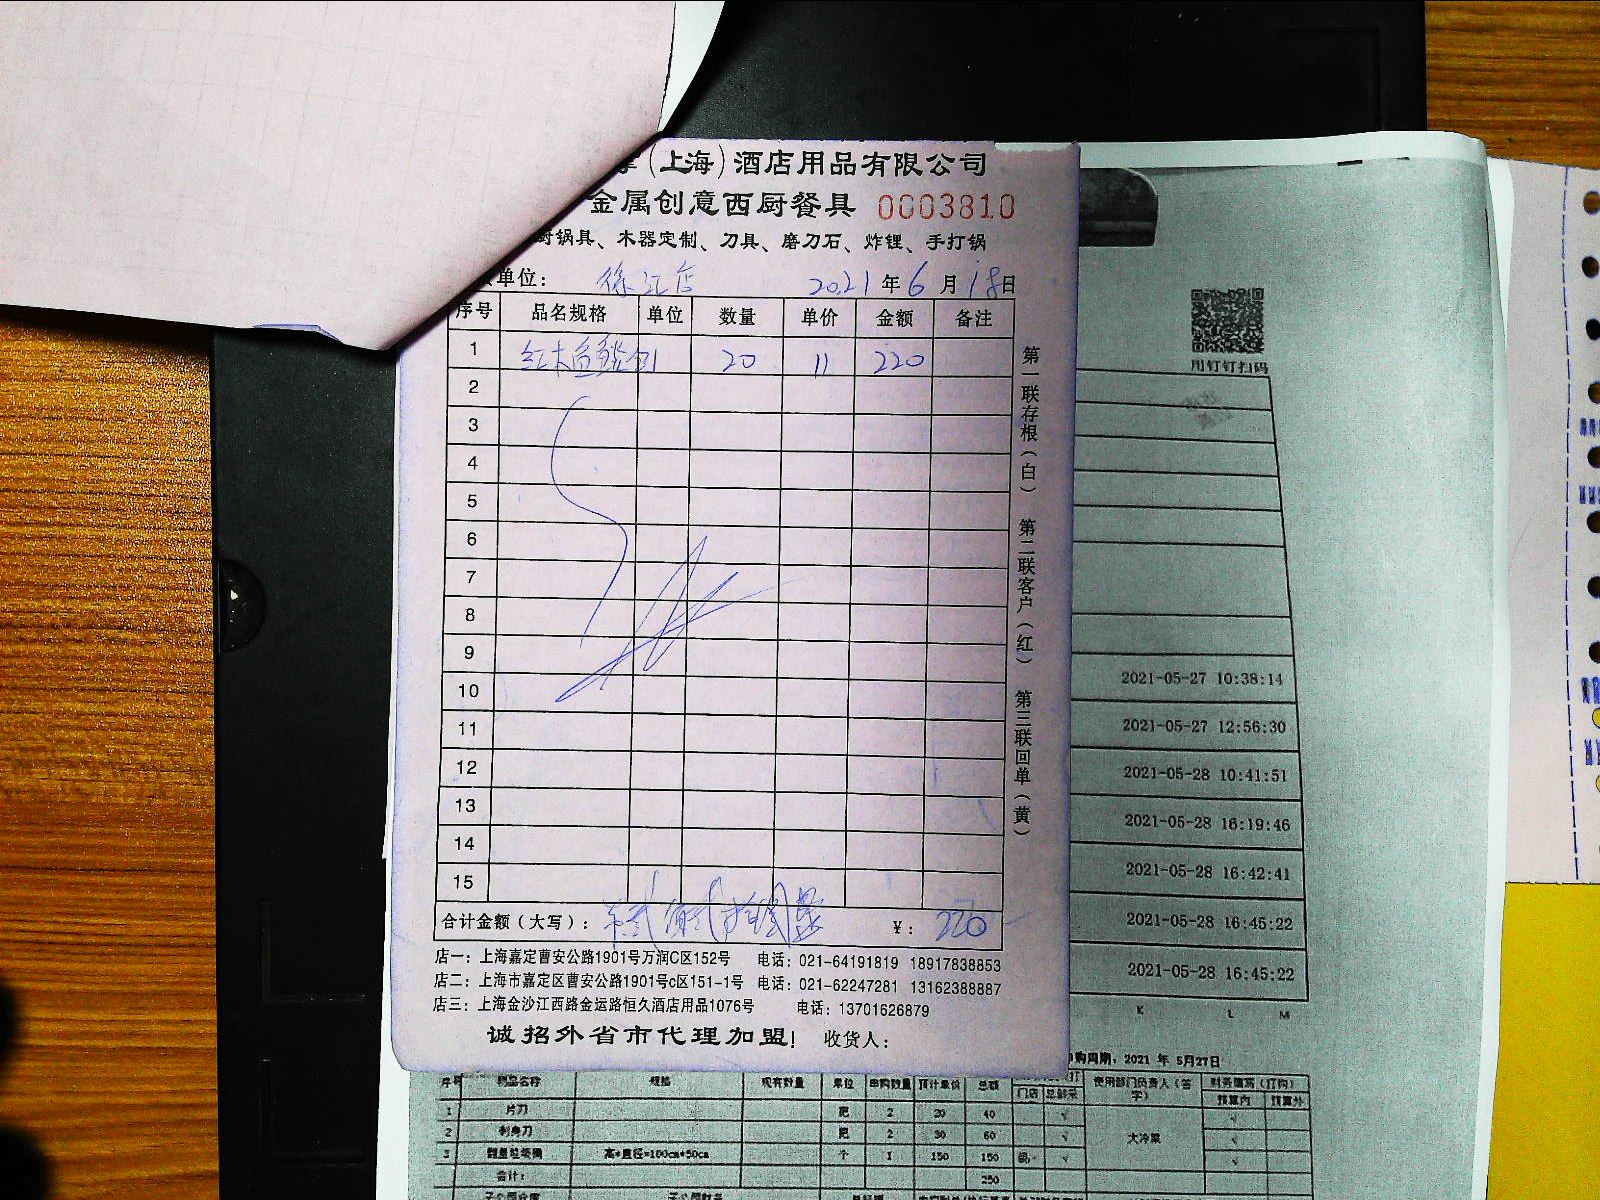 (上海)酒店用品有限公司
金属创意西厨餐具 0003810
厨锅具、木器定制、刀具、磨刀石、炸锂、手打锅
单位: 徐汇店 2021年6月18日
序号 品名规格 单位 数量 单价 金额 备注
1 20 11 220
2
3
4
5
6
7
8
9
10
11
12
13
14
15
合计金额(大写): ¥: 220
第一联存根(白) 第二联客户(红) 第三联回单(黄)
店一:上海嘉定曹安公路1901号万润C区152号 电话:021-64191819 18917838853
店二:上海市嘉定区曹安公路1901号c区151-1号 电话:021-62247281 13162388887
店三:上海金沙江西路金运路恒久酒店用品1076号 电话:13701626879
诚招外省市代理加盟! 收货人:
用钉钉扫码
2021-05-27 10:38:14
2021-05-27 12:56:30
2021-05-28 10:41:51
2021-05-28 16:19:46
2021-05-28 16:42:41
2021-05-28 16:45:22
2021-05-28 16:45:22
K L M
购周期, 2021 年 5月27日
序号 物品名称 规格 现有数量 单位 申购数量 预计单价 总额 门店 总部采 使用部门负责人(签字) 财务填写(订购) 预算内 预算外
1 片刀 把 2 20 40 √ 大冷菜 √
2 刺身刀 把 2 30 60 √ √
3 高*直径=100cm*50cm 个 1 150 150 √ √
合计: 250